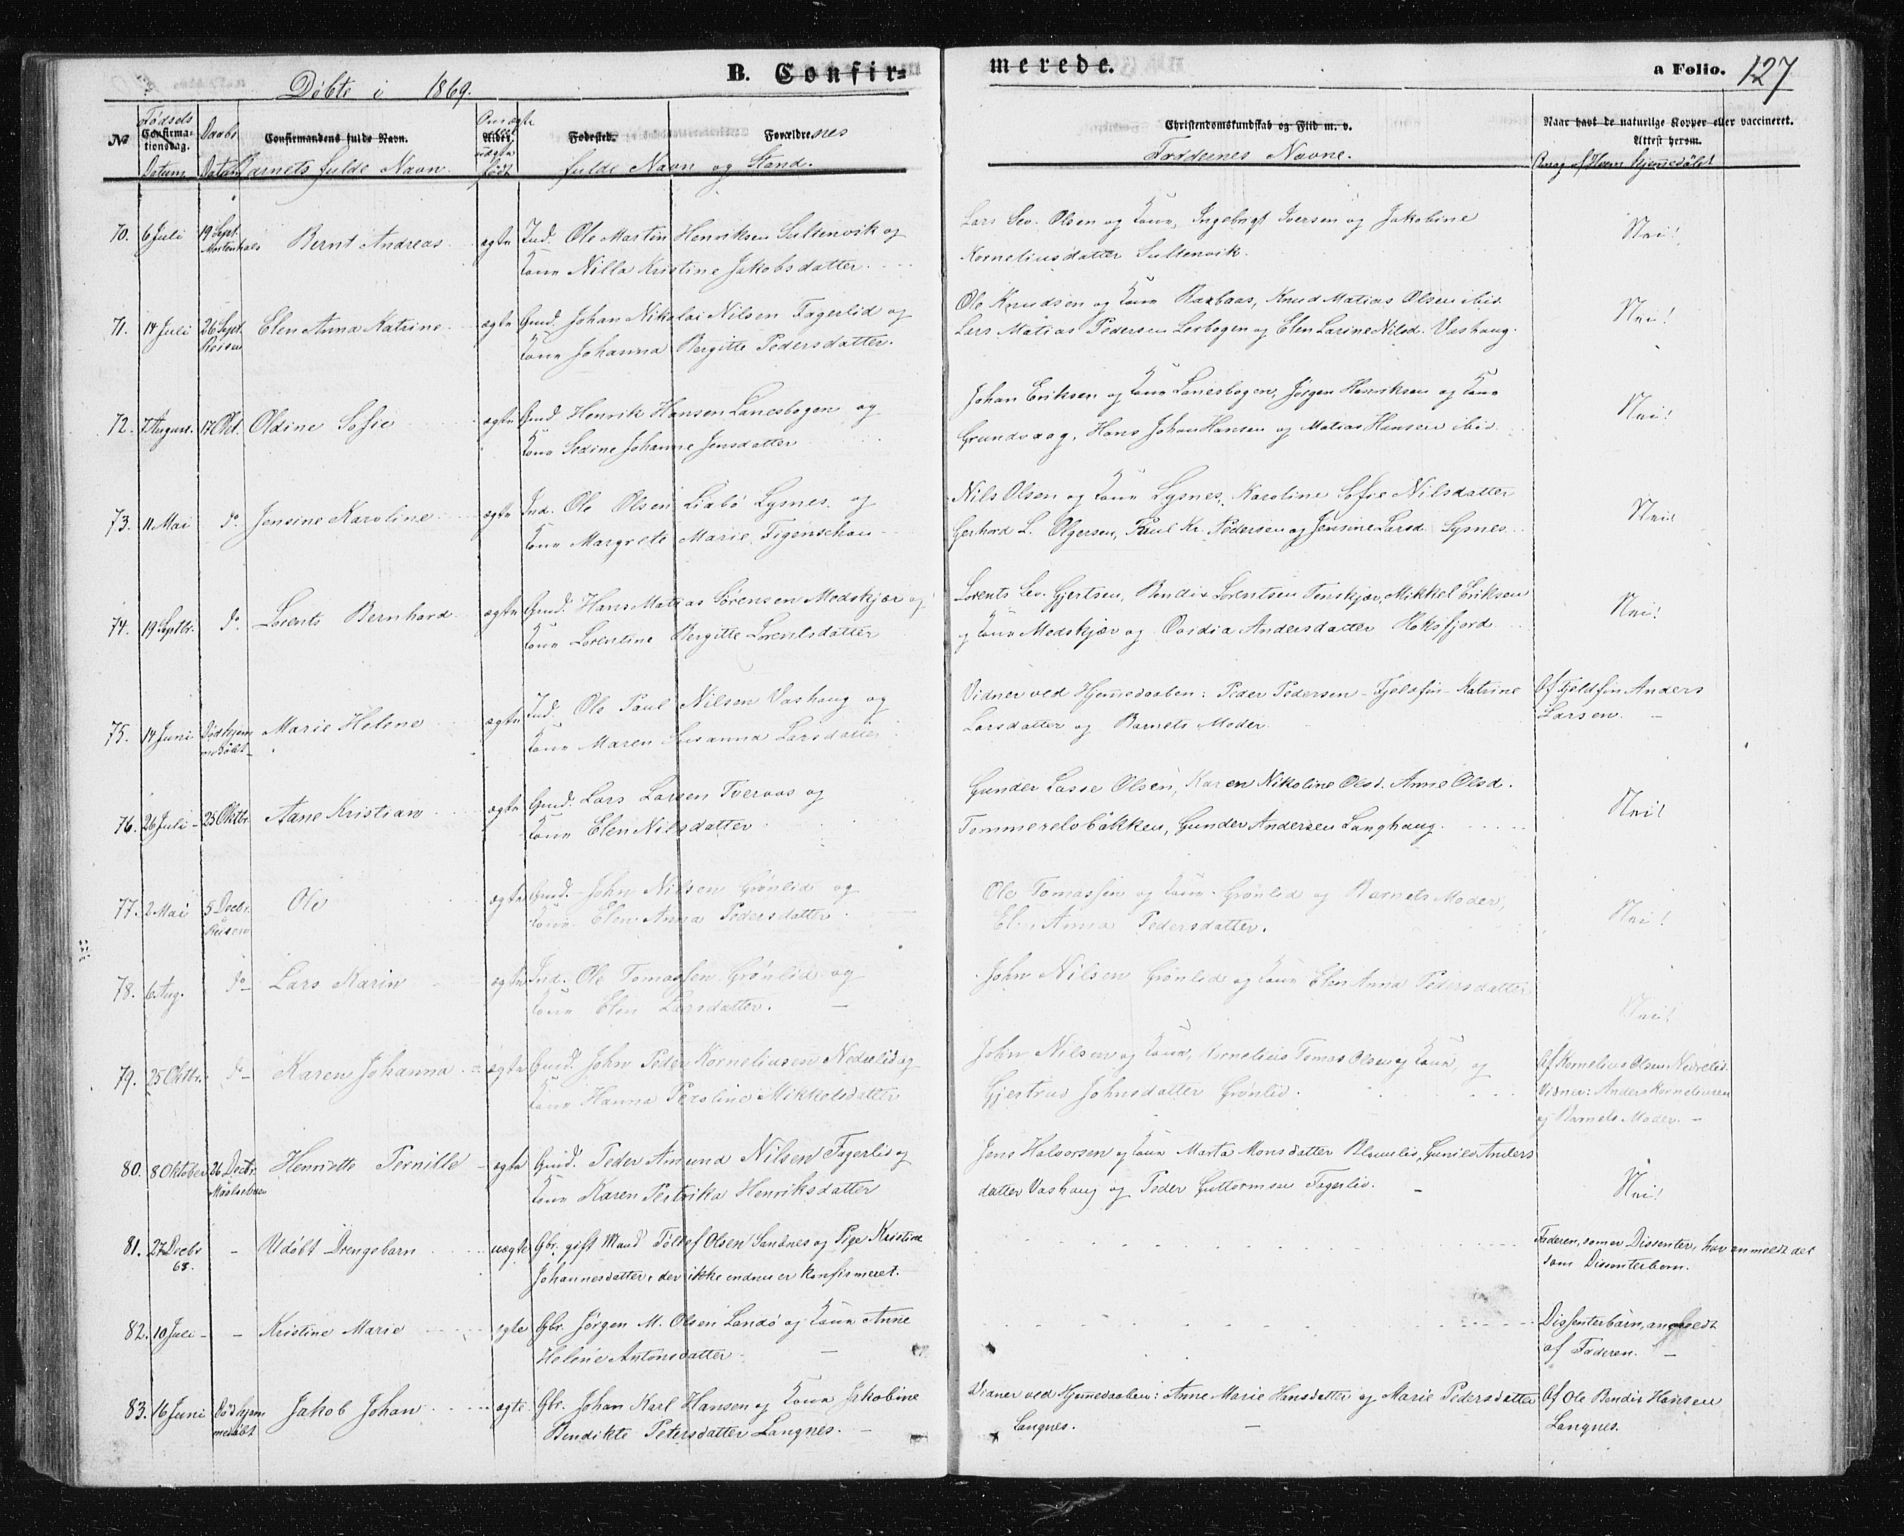 Døbte i 1869.
B. Confir=
merede.
a Folio. 127
No
Fødsels
Confirma-
tionsdag.
Datum
Daabs
Datum
Confirmandens fulde Navn.
Barnets fulde Navn.
Alder
Fødested.
Forældrenes
fulde Navn og Stand.
Christendomskundskab og Flid m. v.
Faddernes Navne.
Naar havt de naturlige Kopper eller vaccineret.
Attest herom.
70. 6 Juli 19 Sept. Bernt Andreas ægte Ind. Ole Martin Henriksen Sultenvik og
Kone Nilla Kristine Jakobsdatter.
Lars Sev. Olsen og Kone, Ingebrigt Iversen og Jakobine
Korneliusdatter Sultenvik.
Nei!
71. 14 Juli 26 Sept. Reisen Elen Anna Katrine ægte Gmd. Johan Nikolai Nilsen Fagerlid og
Kone Johanna Bergitte Pedersdatter.
Ole Knudsen og Kone Baxbaas, Knud Matias Olsen ibid.
Lars Matias Pedersen Lerbogen og Elen Larine Nilsd. Vashaug.
Nei!
72. 7 August. 17 Okt. Oldine Sofie ægte Gmd. Henrik Hansen Lanesbogen og
Kone Sedine Johanne Jensdatter
Johan Eriksen og Kone Lanesbogen, Jørgen Henriksen og Kone
Grundvaag, Hans Johan Hansen og Matias Hansen ibid.
Nei!
73. 11 Mai do Jensine Karoline ægte Ind. Ole Olsen Liabø Lysnes og
Kone Margrete Marie Figenschau
Nils Olsen og Kone Lysnes, Karoline Sofie Nilsdatter
Gerhard L. Olgersen, Paul Kr. Pedersen og Jensine Larsd. Lysnes
Nei!
74. 19 Septbr. do Lorents Bernhard ægte Gmd. Hans Matias Sørensen Medskjær og
Kone Lorentine Bergitte Lorentsdatter
Lorents Sev. Gjertsen, Bendix Lorentsen Finskjær, Mikkel Eriksen
og Kone Medskjær og Ovidia Andersdatter Roksfjord
Nei!
75. 14 Juni Død hjem-
medøbt Marie Helene ægte Ind. Ole Paul Nilsen Vashaug og
Kone Maren Susanna Larsdatter
Vidner ved Hjemmedaaben: Peder Pedersen - Fjeldfin - Katrine
Larsdatter og Barnets Moder
Af Fjeldfin Anders
Larsen.
76. 26 Juli 25 Oktbr. Aane Kristian ægte Gmd. Lars Larsen Tveraas og
Kone Elen Nilsdatter
Gunder Lasse Olsen, Karen Nikoline Olsd. Anne Olsd.
Tommerelvbakken, Gunder Andersen Langhaug.
Nei!
77. 2 Mai 5 Decbr. Reisen Ole ægte Gmd. John Nilsen Grønlid og
Kone Elen Anna Pedersdatter.
Ole Tomassen og Kone Grønlid og Barnets Moder,
Elen Anna Pedersdatter.
Nei!
78. 6 Aug. do Lars Karin ægte Ind. Ole Tomassen Grønlid og
Kone Elen Larsdatter.
John Nilsen Grønlid og Kone Elen Anna Pedersdatter
Nei!
79. 25 Oktbr. do Karen Johanna ægte Gmd. John Peder Korneliusen Nedrelid og
Kone Hanna Peroline Mikkelsdatter
John Nilsen og Kone, Kornelius Tomas Olsen og Kone, og
Gjertrud Johnsdatter Grønlid.
Af Kornelius Olsen Nedrelid.
Vidner: Anders Korneliusen
og Barnets Moder.
80. 8 Oktober 26 Decbr. Henriette Pernille ægte Gmd. Peder Amund Nilsen Fagerlid og
Kone Karen Petrika Henriksdatter
Jens Halvorsen og Kone Marta Monsdatter Blomlid, Gunild Anders
datter Vashaug og Peder Guttormsen Fagerlid.
Nei!
81. 27 Decbr 68. - Udøbt Drengebarn uægte Gbr. gift Mand Tollef Olsen Sandnes og Pige Kristine
Johannesdatter, der ikke endnu er konfirmeret.
Faderen, som er Dissenter, har anmeldt det
som Dissenterbarn.
82. 10 Juli - - Kristine Marie ægte Gbr. Jørgen M. Olsen Landø og Kone Anne
Helene Antonsdatter
Dissenterbarn, anmeldt
af Faderen.
83. 16 Juni Død hjem
medøbt Jakob Johan ægte. Gbr. Johan Karl Hansen og Kone Jakobine
Bendikte Petersdatter Langnes.
Vidner ved Hjemmedaaben: Anne Marie Hansdatter og Marie Pedersdatter
Langnes.
Af Ole Bendix Hansen
Langnes.